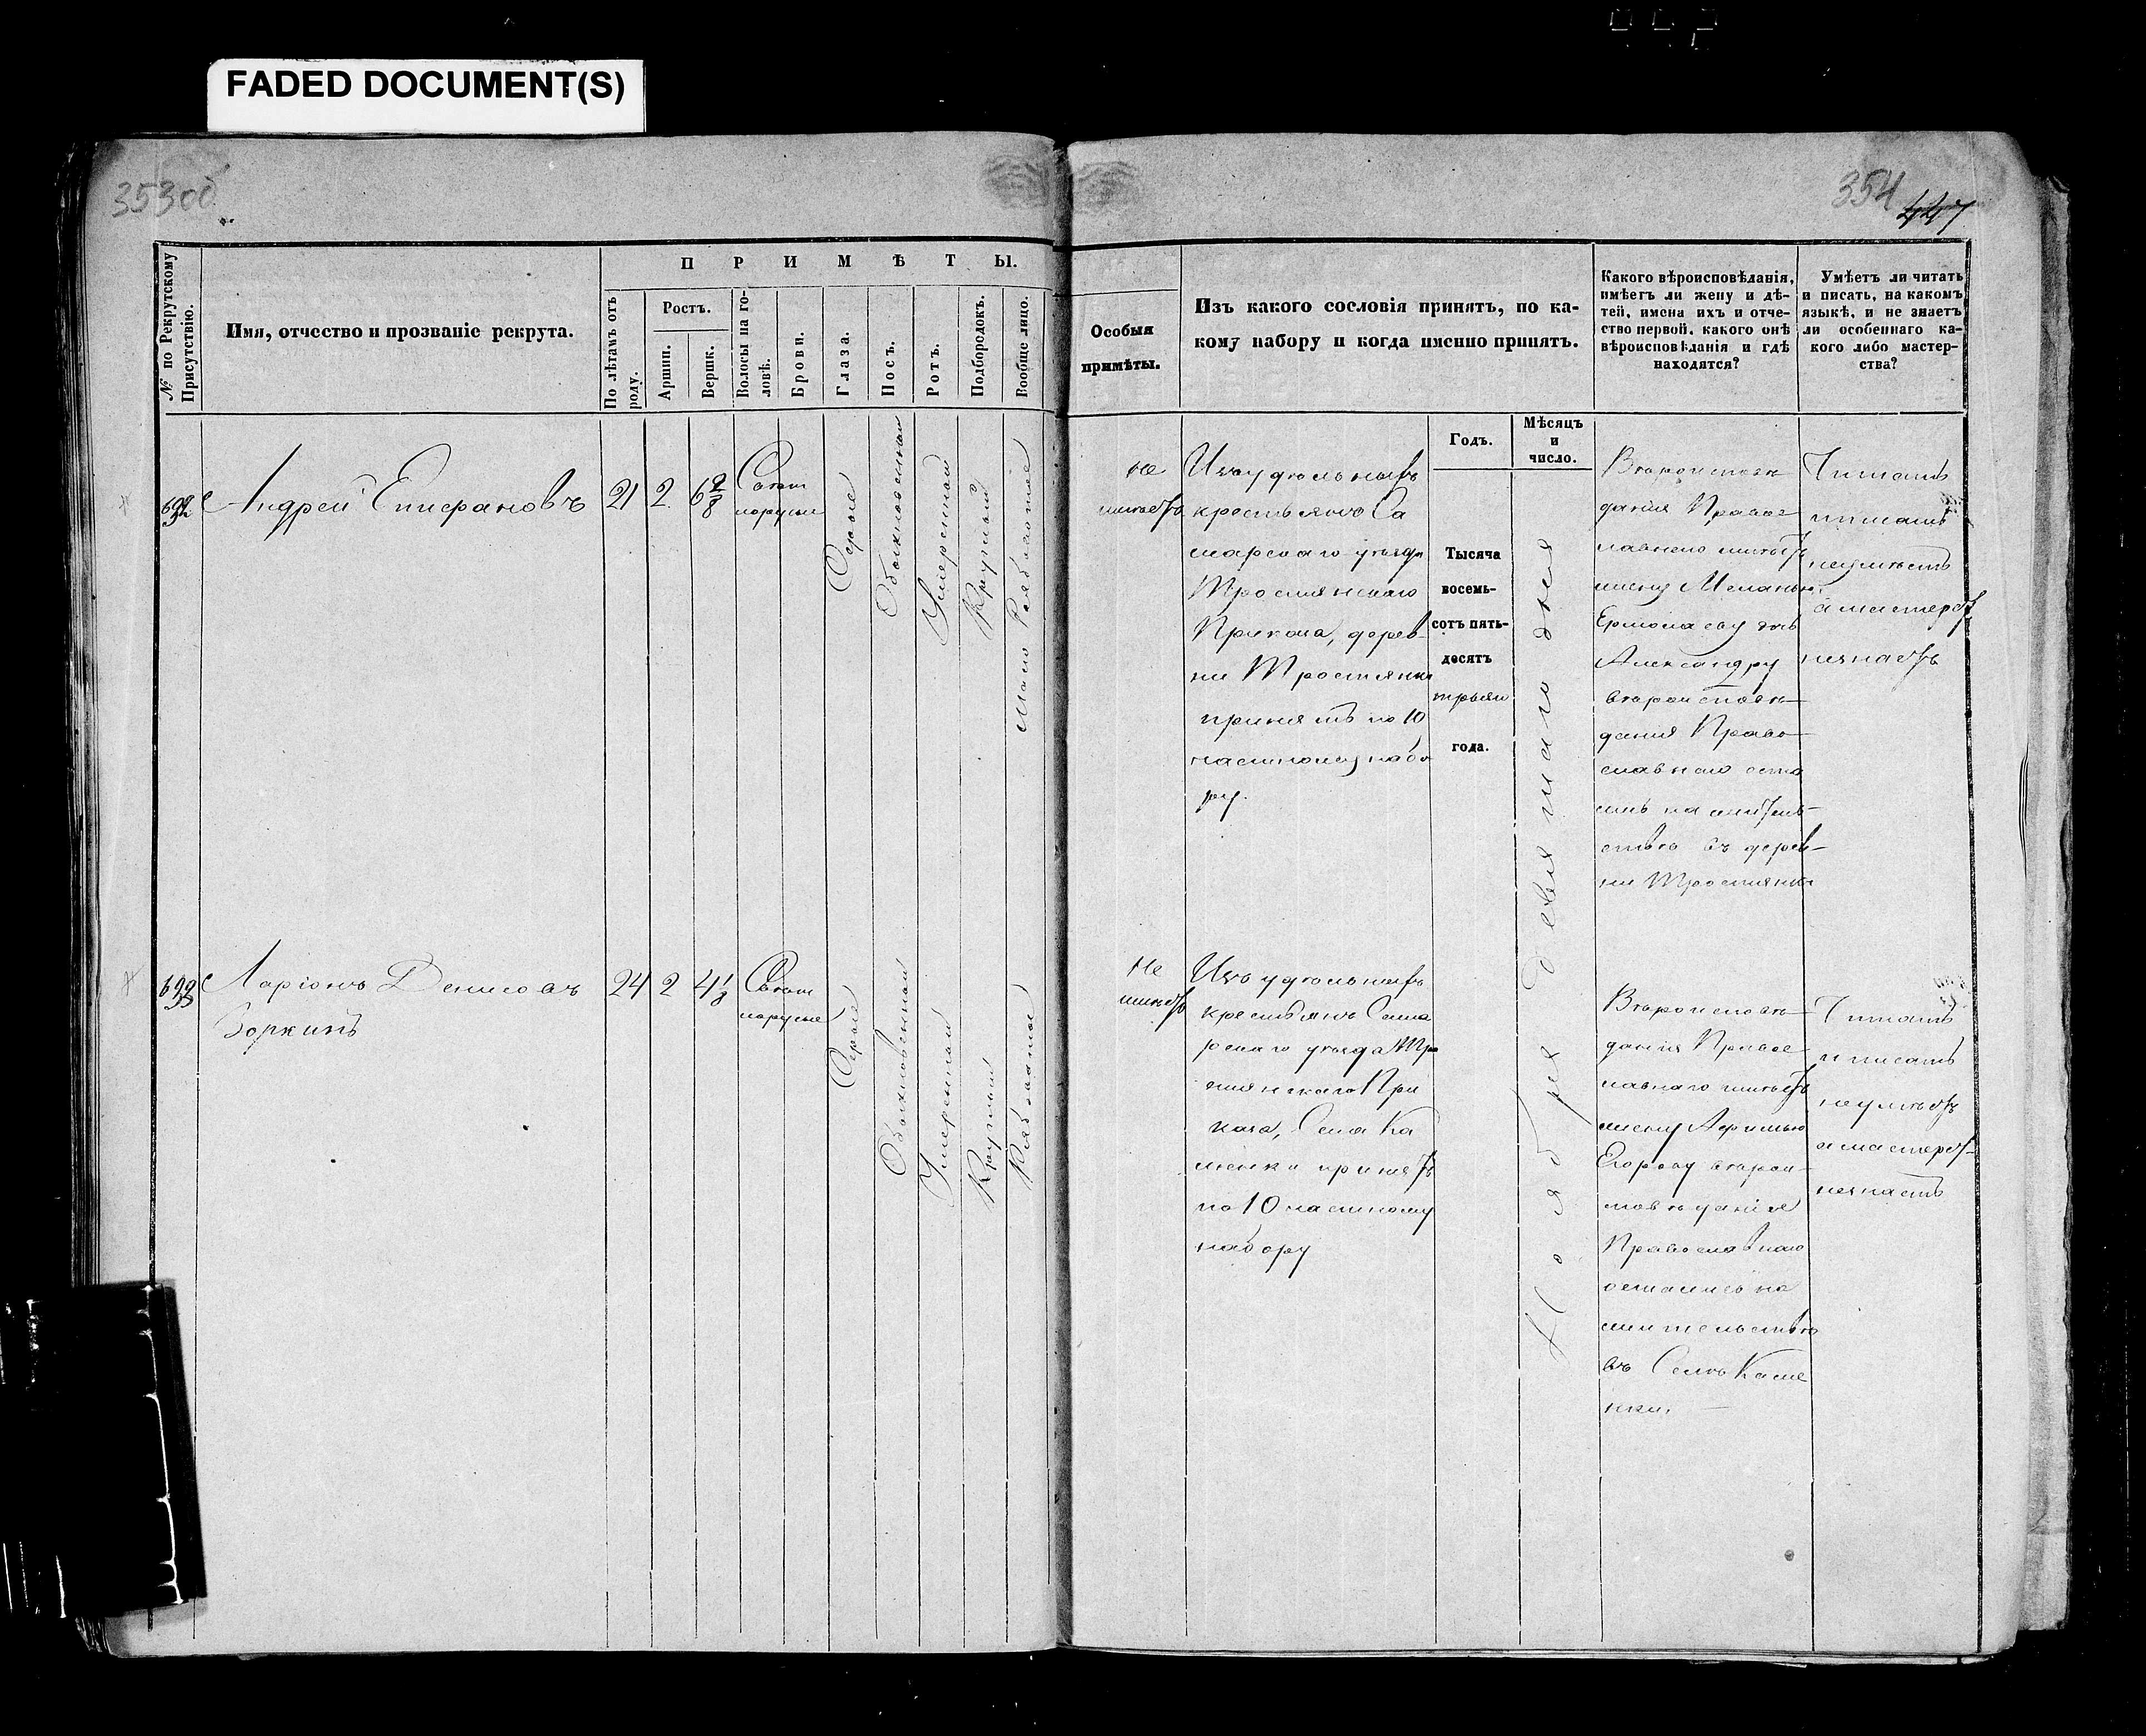 FADED DOCUMENT(S)
353об
354
447
№ по Рекрутскому Присутствію.
Имя, отчество и прозваніе рекрута.
ПРИМѢТЫ.
По лѣтамъ отъ роду.
Ростъ.
Аршин.
Вершк.
Волосы на головѣ.
Брови.
Глаза.
Носъ.
Ротъ.
Подбородокъ.
Вообще лицо.
Особыя
примѣты.
Изъ какого сословія принятъ, по ка-
кому набору и когда именно принятъ.
Какого вѣроисповѣданія,
имѣетъ ли жену и дѣ-
тей, имена ихъ и отче-
ство первой, какого онѣ
вѣроисповѣданія и гдѣ
находятся?
Умѣетъ ли читать
и писать, на какомъ
языкѣ, и не знаетъ
ли особеннаго ка-
кого либо мастер-
ства?
Годъ.
Мѣсяцъ
и
число.
Андрей Епифановъ
21
2
6 2/8
Светло
русые
Серые
Обыкновенный
Умеренный
Круглый
Мало Рябоватое
не
имеетъ
Изъ удельныхъ
крестьянъ Са
марскаго уезда
Тростянскаго
Приказа, дерев-
ни Тростянки
принятъ по 10
частному набо
ру.
Тысяча
восемь-
сотъ пять-
десятъ
третьяго
года.
Ноября девятаго дня
Вероиспове
данія Правос
лавнаго имеетъ
жену Меланью
Ермолаеву дочь
Александру
вероиспове
данія Право
славнаго оста
лись на житель
стве въ дерев-
ни Тростянки
Читать
и писать
неумеетъ
а мастерст
незнаетъ
Ларіонъ Денисовъ
Зоркинъ
24
2
4 1/8
Светло
русые
Серые
Обыкновенный
Умеренный
Круглый
Рябоватое
Не
имеетъ
Изъ удельныхъ
крестьянъ Сама
рскаго уезда Тро
стянскаго При
каза, Села Ка
менки принятъ
по 10 частному
набору
Вероиспове
данія Правос
лавнаго имеетъ
жену Афимью
Егорову вероис
поведанія
Православнаго
остались на
жительстве
въ Селе Каме
нки.
Читать
и писать
неумеетъ
а мастерст
незнаетъ